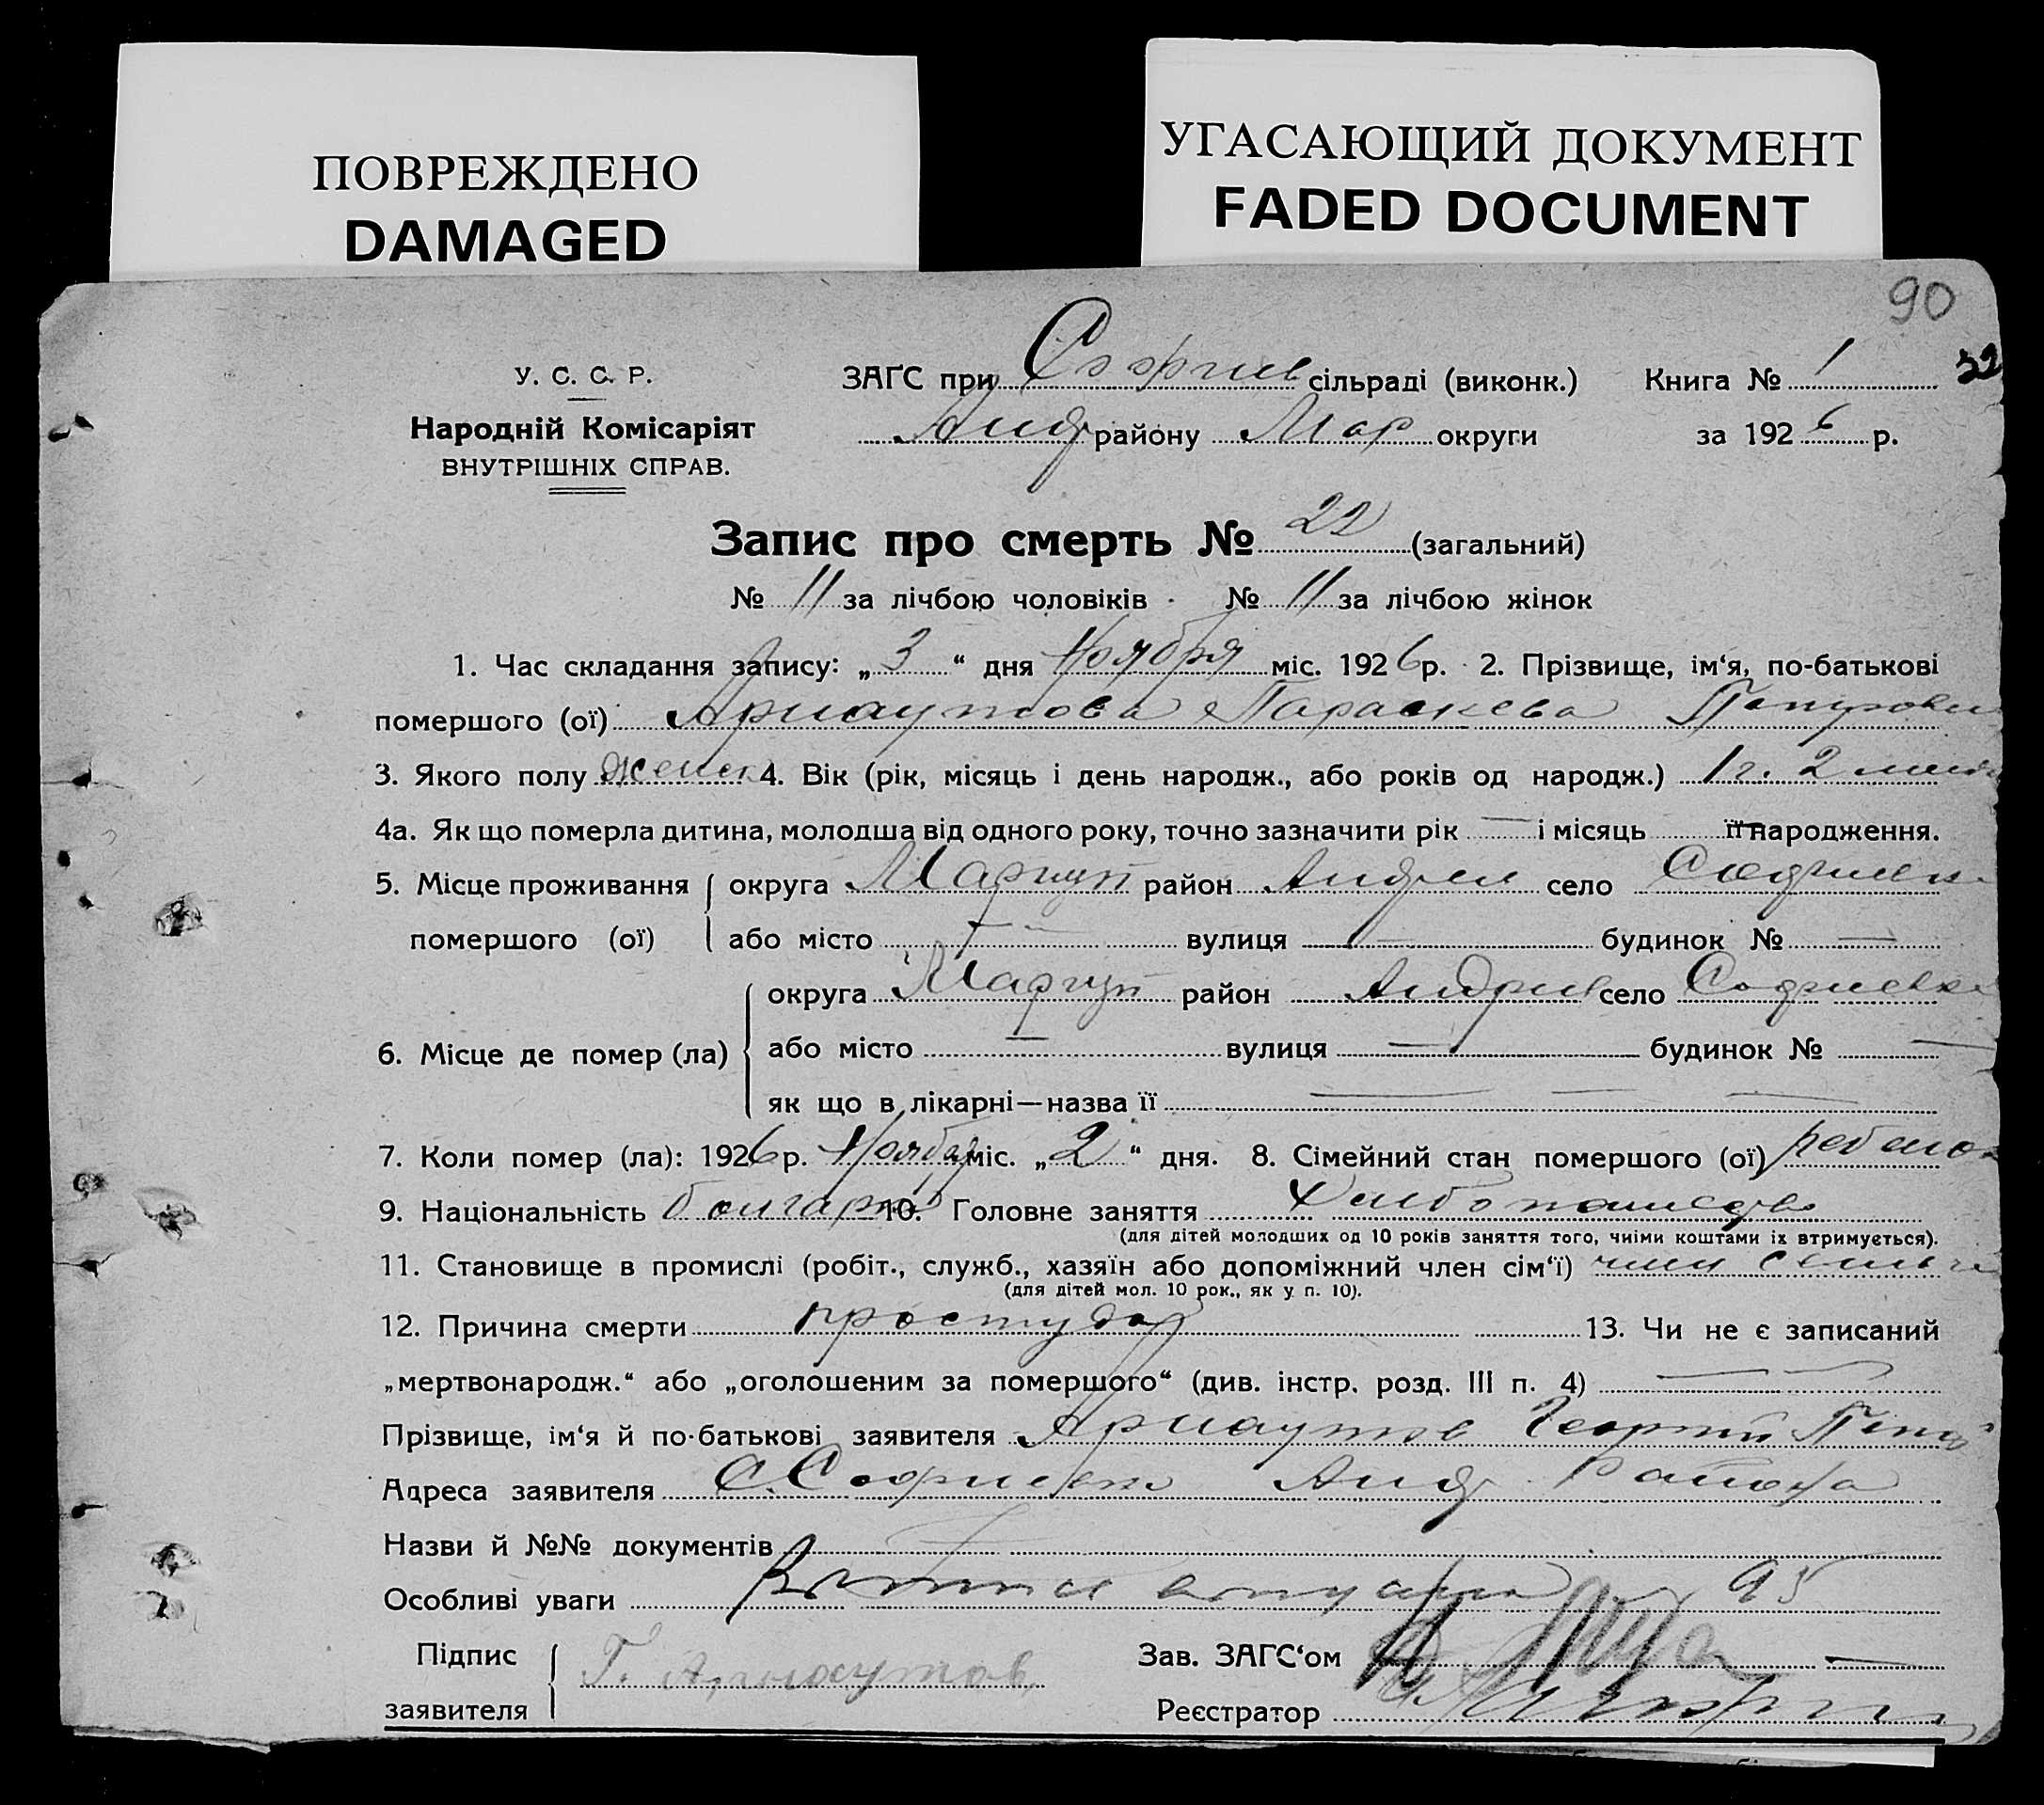 ПОВРЕЖДЕНО
DAMAGED
УГАСАЮЩИЙ ДОКУМЕНТ
FADED DOCUMENT
90
32
У. С. С. Р.
Народній Комісаріят
ВНУТРІШНІХ СПРАВ.
ЗАГС при Софиев сільраді (виконк.) Книга № 1
Андр району Мар округи за 1926 р.
Запис про смерть № 22 (загальний)
№ 11 за лічбою чоловіків № 11 за лічбою жінок
1. Час складання запису: „3“ дня Ноября міс. 1926 р. 2. Прізвище, ім‘я, по-батькові
помершого (ої) Арнаутова Параскева Петровн
3. Якого полу женск 4. Вік (рік, місяць і день народж., або років од народж.) 1 г. 2
4а. Як що померла дитина, молодша від одного року, точно зазначити рік — і місяць її народження.
5. Місце проживання округа Мариуп район Андреев село Софиевка
помершого (ої) або місто — вулиця — будинок № —
округа Мариуп район Андриев село Софиевка
6. Місце де помер (ла) або місто — вулиця — будинок № —
як що в лікарні—назва її — — —
7. Коли помер (ла): 1926 р. Ноября міс. „2“ дня. 8. Сімейний стан помершого (ої) ребенок
9. Національність болгарк 10. Головне заняття Хлебопашество
(для дітей молодших од 10 років заняття того, чиїми коштами їх втримується).
11. Становище в промислі (робіт., служб., хазяїн або допоміжний член сім‘ї) член семьи
(для дітей мол. 10 рок., як у п. 10).
12. Причина смерти простуда 13. Чи не є записаний
„мертвонародж.“ або „оголошеним за помершого“ (див. інстр. розд. III п. 4) — —
Прізвище, ім‘я й по-батькові заявителя Арнаутов Георгий Петр
Адреса заявителя С. Софиевка Андр. Района
Назви й №№ документів
Особливі уваги
Підпис
заявителя Г. Арнаутов
Зав. ЗАГС‘ом
Реєстратор